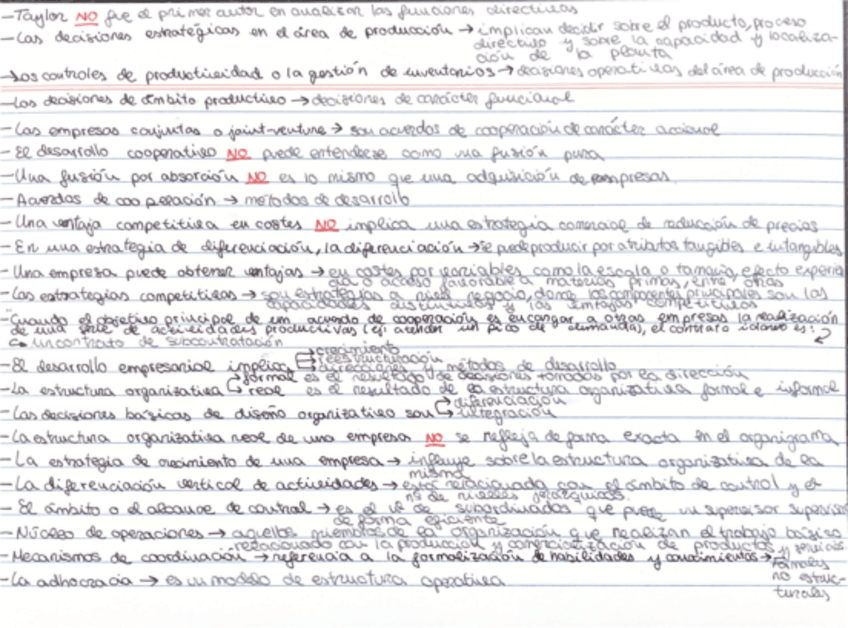 -Taylor NO fue el primer autor en analizar las funciones directivas
-Las decisiones estratégicas en el área de producción → implican decidir sobre el producto, proceso
directivo y sobre la capacidad y localiza-
ción de la planta
→Los controles de productividad o la gestión de inventarios → decisiones operativas del área de producción
-Las decisiones de ámbito productivo → decisiones de carácter funcional
-Las empresas conjuntas o joint-venture → son acuerdos de cooperación de carácter accional
-El desarrollo cooperativo NO puede entenderse como una fusión pura
-Una fusión por absorción NO es lo mismo que una adquisición de empresas.
-Acuerdos de cooperación → métodos de desarrollo
-Una ventaja competitiva en costes NO implica una estrategia comercial de reducción de precios
-En una estrategia de diferenciación, la diferenciación → se puede producir por atributos tangibles e intangibles
-Una empresa puede obtener ventajas → en costes por variables como la escala o tamaño, efecto experien
cia o acceso favorable a materias primas, entre otras
-Las estrategias competitivas → son estrategias a nivel negocio, donde los componentes principales son las
capacidades distintivas y las ventajas competitivas
-Cuando el objetivo principal de un acuerdo de cooperación es encargar a otras empresas la realización
de una serie de actividades productivas (ej: atender un pico de demanda), el contrato idóneo es:
un contrato de subcontratación
-El desarrollo empresarial implica → crecimiento
→ reestructuración
→ direcciones y métodos de desarrollo
-La estructura organizativa → formal es el resultado de decisiones tomadas por la dirección
→ real es el resultado de la estructura organizativa formal e informal
-Las decisiones básicas de diseño organizativo son → diferenciación
→ integración
-La estructura organizativa real de una empresa NO se refleja de forma exacta en el organigrama
-La estrategia de crecimiento de una empresa → influye sobre la estructura organizativa de la
misma
-La diferenciación vertical de actividades → está relacionada con el ámbito de control y el
nº de niveles jerárquicos.
-El ámbito o el alcance de control → es el nº de subordinados que puede un supervisor supervisar
de forma eficiente
-Núcleo de operaciones → aquellos miembros de la organización que realizan el trabajo básico
relacionado con la producción y comercialización de productos y servicios
-Mecanismos de coordinación → referencia a la formalización de habilidades y conocimientos →
formales
no estruc-
turales
-La adhocracia → es un modelo de estructura operativa